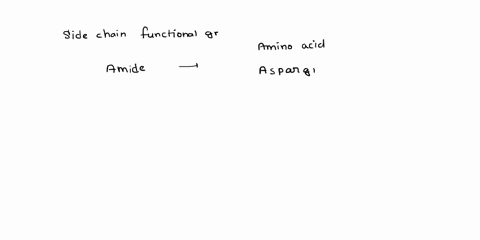 Side chain functional gr
Amino acid
Amide → Aspargi